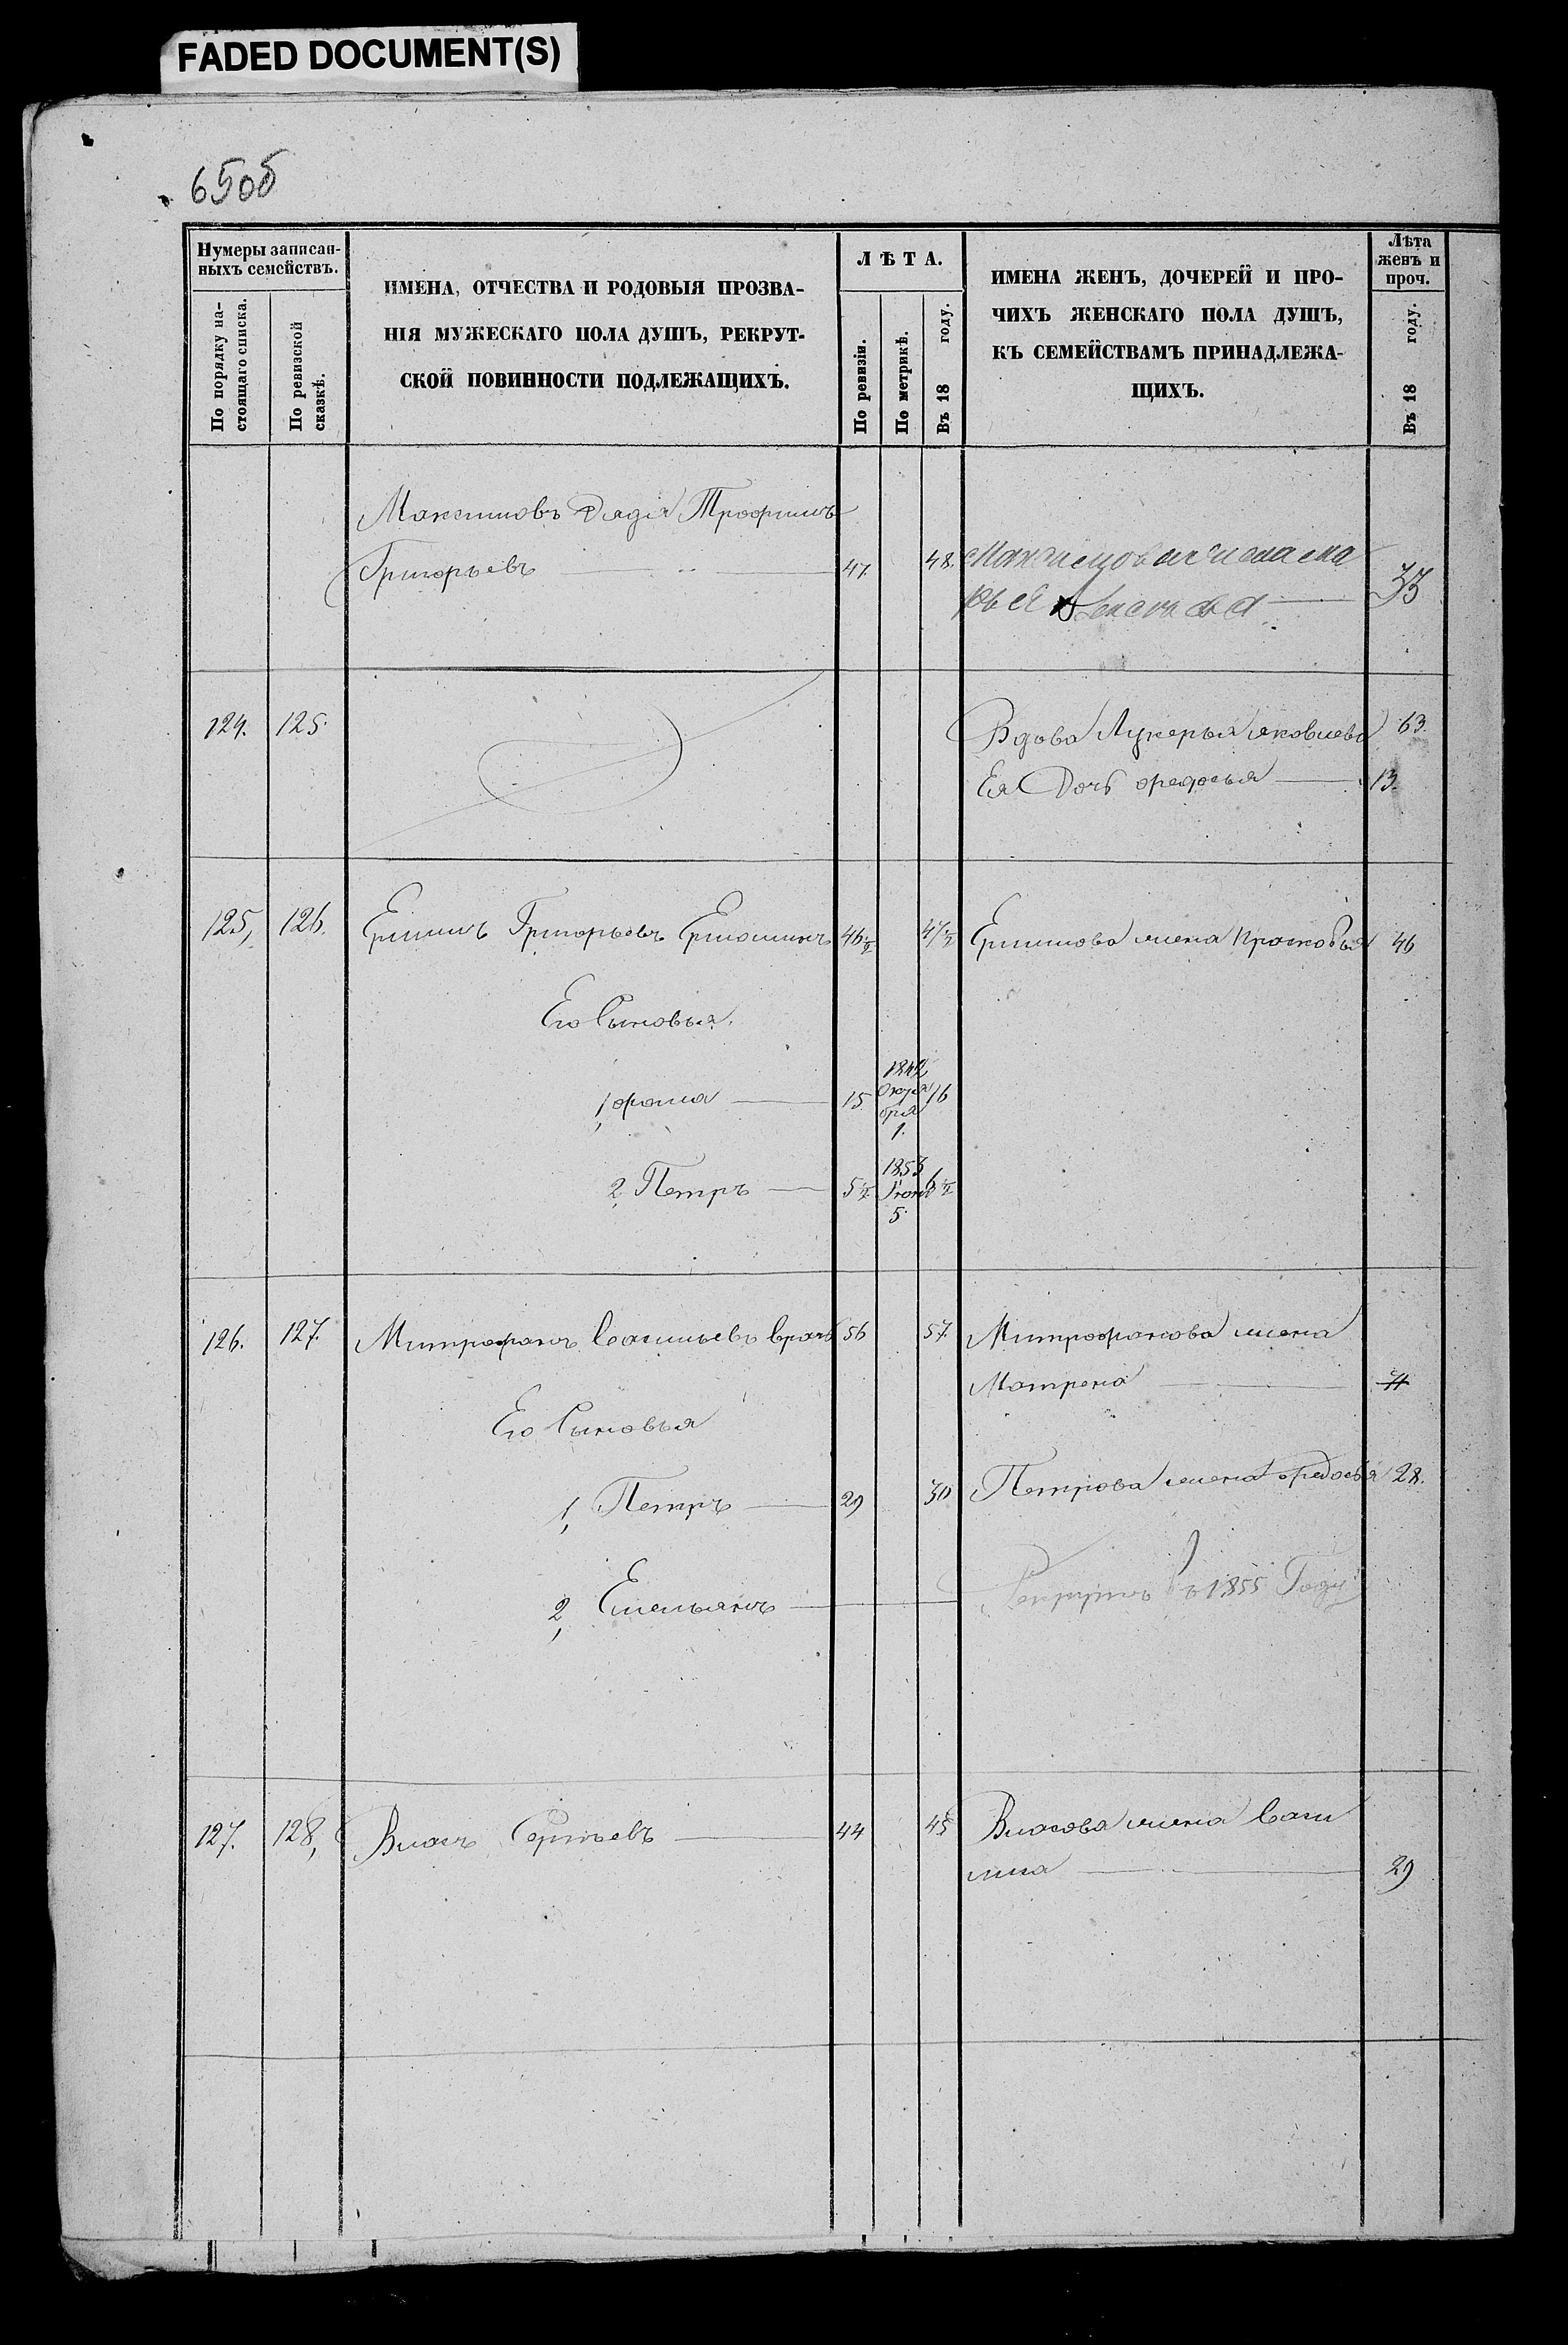 FADED DOCUMENT(S)
65об
Нумеры записан-
ныхъ семействъ.
По порядку на-
стоящаго списка.
По ревизской
сказкѣ.
ИМЕНА, ОТЧЕСТВА И РОДОВЫЯ ПРОЗВА-
НІЯ МУЖЕСКАГО ПОЛА ДУШЪ, РЕКРУТ-
СКОЙ ПОВИННОСТИ ПОДЛЕЖАЩИХЪ.
ЛѢТА.
По ревизіи.
По метрикѣ.
Въ 18 году.
ИМЕНА ЖЕНЪ, ДОЧЕРЕЙ И ПРО-
ЧИХЪ ЖЕНСКАГО ПОЛА ДУШЪ,
КЪ СЕМЕЙСТВАМЪ ПРИНАДЛЕЖА-
ЩИХЪ.
Лѣта
женъ и
проч.
Въ 18 году.
Максимовъ Дядя Трофимъ
Григорьевъ 47. 48.
33
124. 125. Вдова Лукерья Яковлева 63.
Ея Дочь Федосья 13.
125, 126. Ермилъ Григорьевъ 46½ 47½ Ермилова жена Прасковья 46
Его Сыновья.
1, Фома 15 1842 Октя бря 1. 16
2, Петръ 5½ 1853 Іюня 5. 6½
126. 127. Митрофанъ Васильевъ 56 57. Митрофанова жена
Матрена
Его Сыновья
1, Петръ 29 30 Петрова жена Федосья 28.
2, Емельянъ Рекрутъ въ 1855 Году
127. 128, Власъ Сергѣевъ 44 45 Власова жена Васи
лиса 29